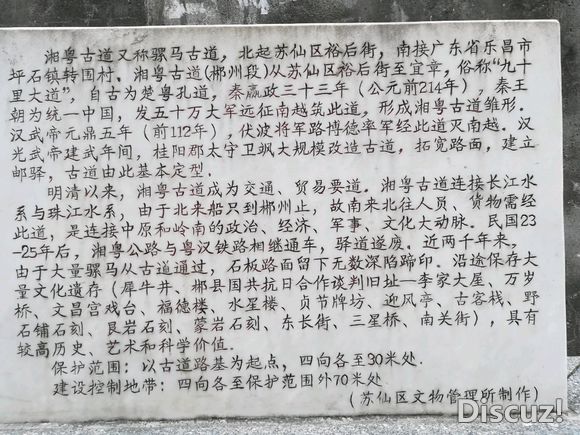 湘粤古道又称骡马古道，北起苏仙区裕后街，南接广东省乐昌市
坪石镇转田村。湘粤古道(郴州段)从苏仙区裕后街至宜章，俗称“九十
里大道”，自古为楚粤孔道，秦嬴政三十三年（公元前214年），秦王
朝为统一中国，发五十万大军远征南越筑此道，形成湘粤古道雏形。
汉武帝元鼎五年（前112年），伏波将军路博德率军经此道灭南越。汉
光武帝建武年间，桂阳郡太守卫飒大规模改造古道，拓宽路面，建立
邮驿，古道由此基本定型。
明清以来，湘粤古道成为交通、贸易要道。湘粤古道连接长江水
系与珠江水系，由于北来船只到郴州止，故南来北往人员、货物需经
此道，是连接中原和岭南的政治、经济、军事、文化大动脉。民国23
-25年后，湘粤公路与粤汉铁路相继通车，驿道遂废。近两千年来，
由于大量骡马从古道通过，石板路面留下无数深陷蹄印。沿途保存大
量文化遗存（犀牛井、郴县国共抗日合作谈判旧址—李家大屋、万岁
桥、文昌宫戏台、福德楼、水星楼、贞节牌坊、迎风亭、古客栈、野
石铺石刻、艮岩石刻、蒙岩石刻、东长街、三星桥、南关街），具有
较高历史、艺术和科学价值。
保护范围：以古道路基为起点，四向各至30米处.
建设控制地带：四向各至保护范围外70米处
（苏仙区文物管理所制作）
Discuz!